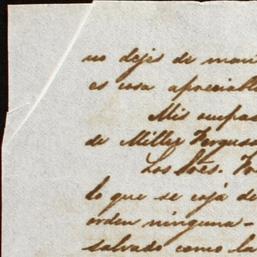 no dejes de man
es cosa apreciabl
Mis ocupa
de Miller Ferguso
Los Sres. Fo
lo que se cojá de
orden ninguna -
salvado como la